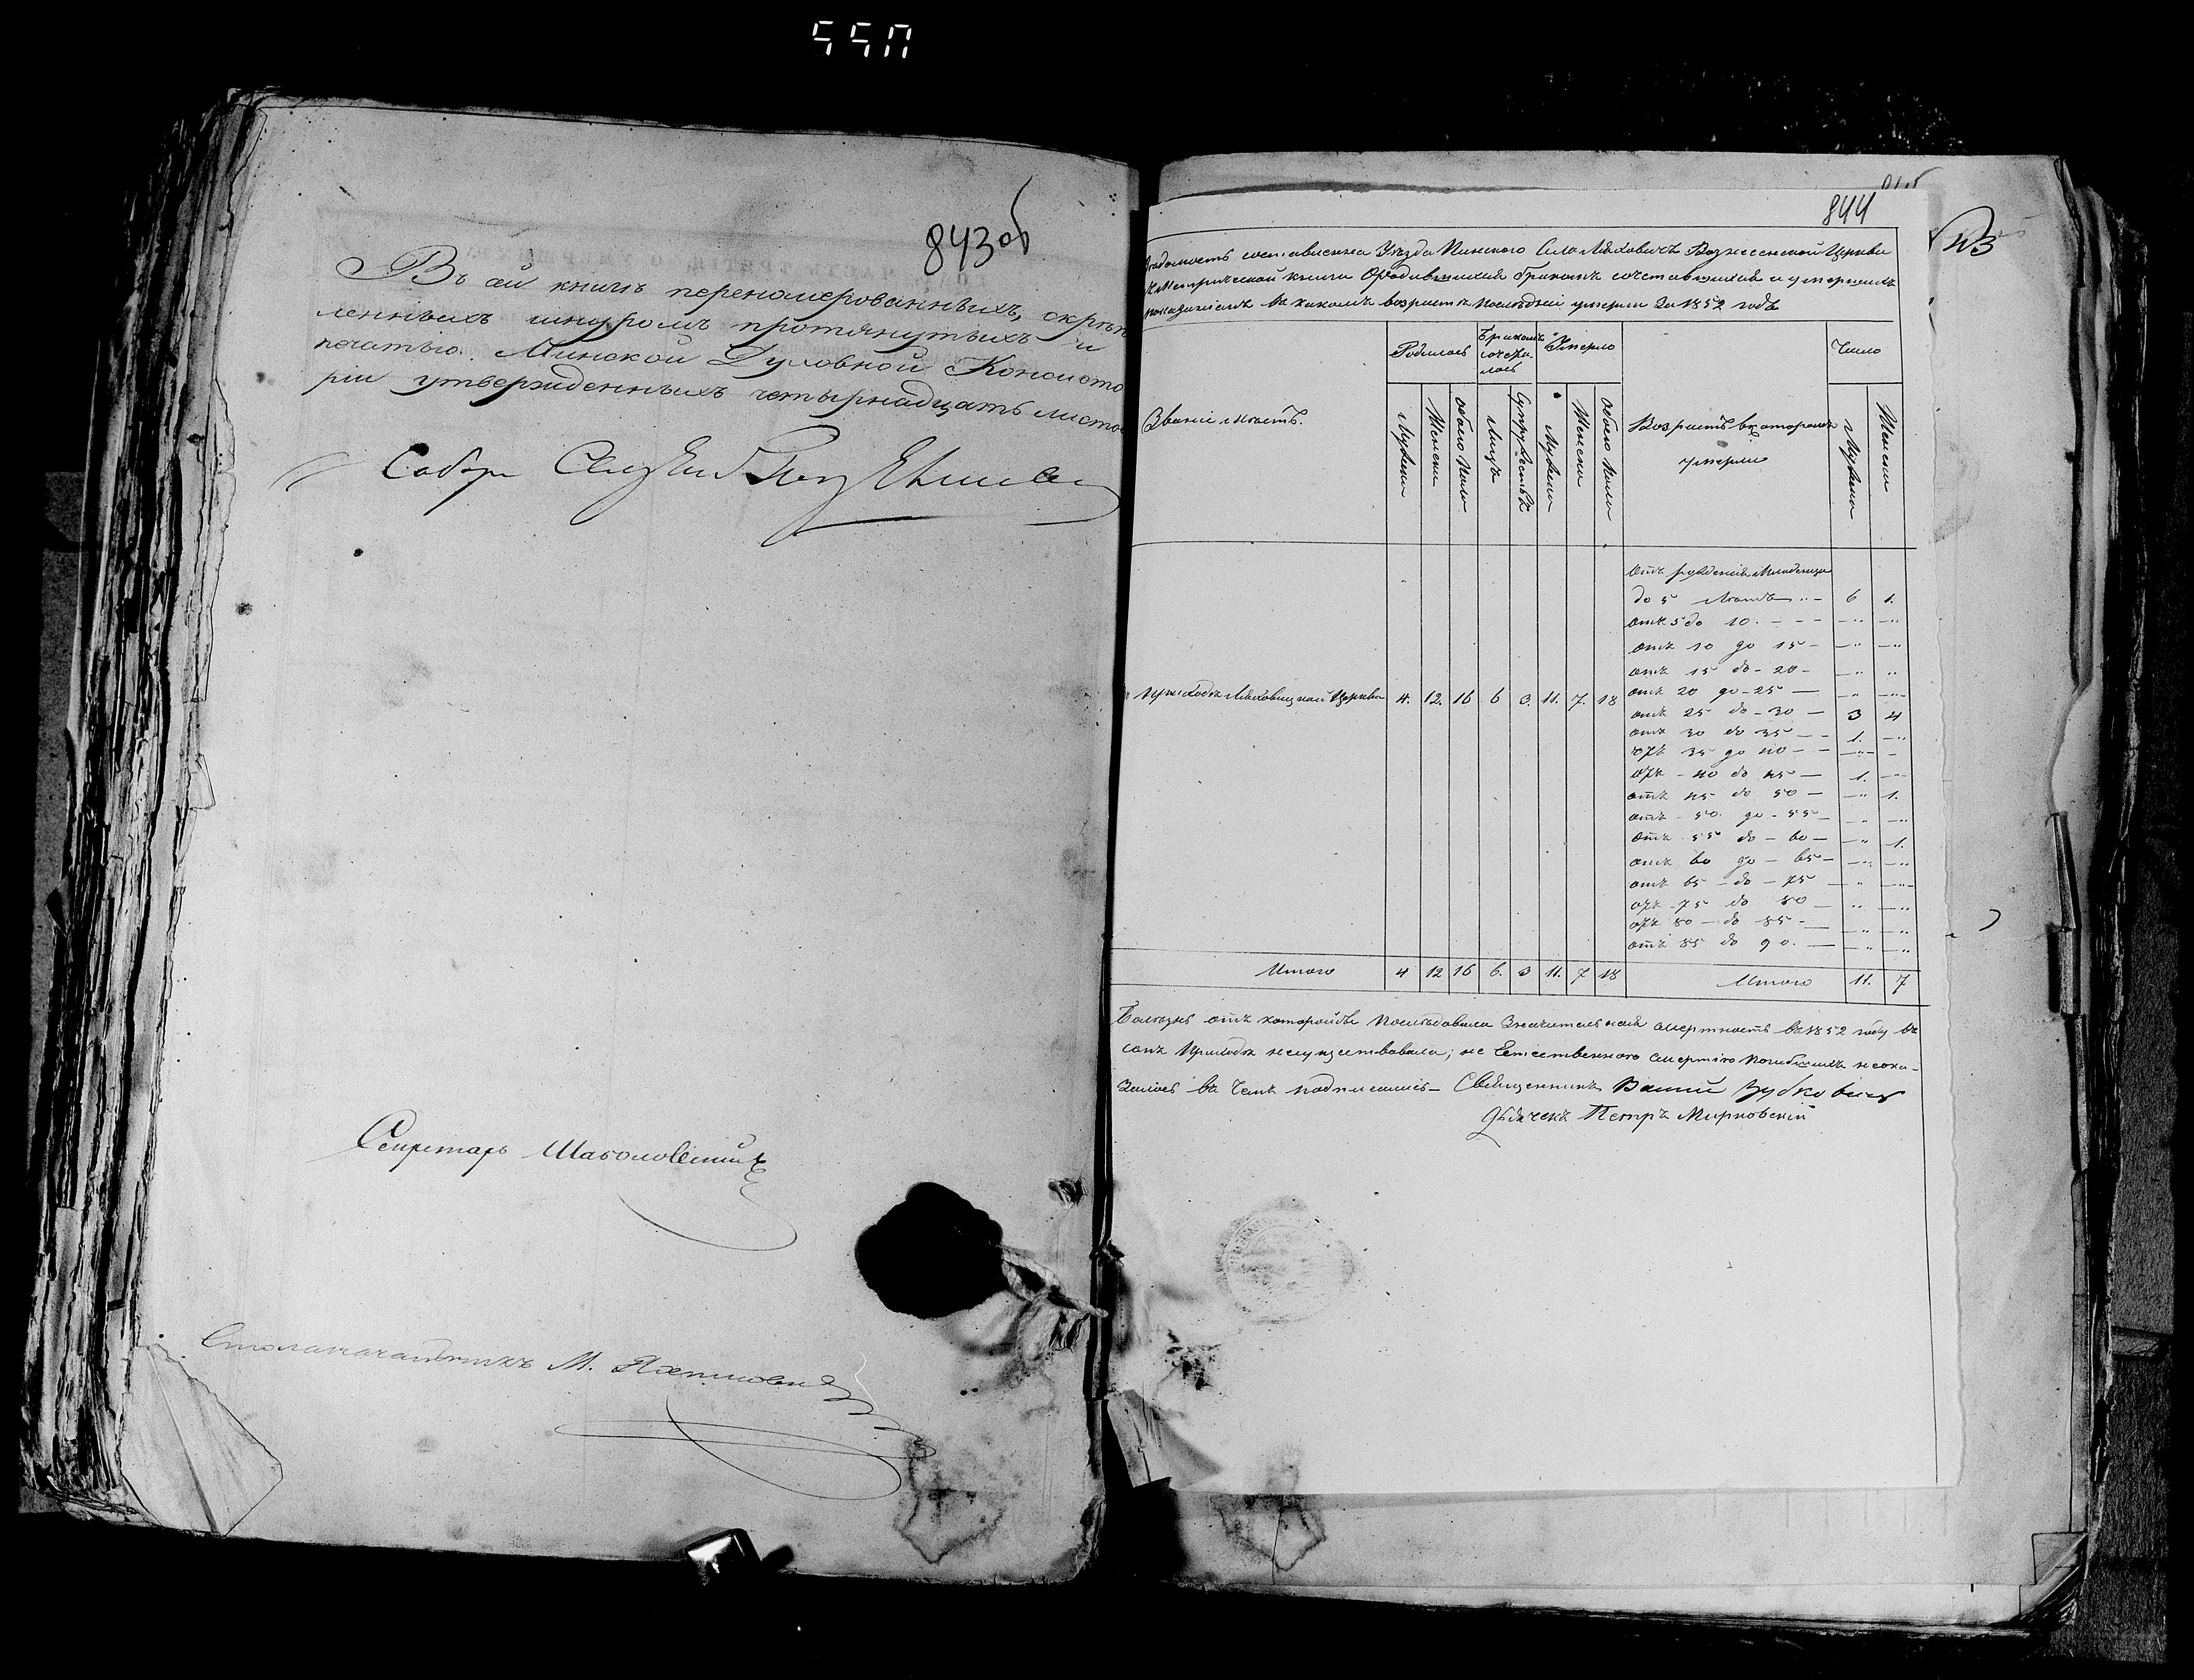 843об
Въ сей книгѣ перенумерованныхъ, скрѣп
ленныхъ шнуромъ протянутыхъ и
печатью Минской Духовной Консисто
ріи утвержденныхъ четырнадцать листо
Секретарь
Столоначальникъ М.
844
Вѣдомость составленна Уѣзда Пинского Села Ляховичъ Вознесенской Церкви
Метрической книги О родившихся бракомъ сочетавшихся и умершихъ
показаніемъ въ какомъ возрастѣ послѣдніи умерли За 1852 годъ
Званіе мѣстъ.
Родилось
Бракомъ сочета-лось
Умерло
Возрастъ въ которомъ умерли
Число
Мужеска
Женска
обоего пола
Лицъ
Супружествъ
Мужеска
Женска
обоего пола
Мужеска
Женска
отъ рожденія младенца
до 5 лѣтъ 6 1.
отъ 5 до 10.
отъ 10 до 15
отъ 15 до 20
Приходѣ Ляховицкой Церкви 4. 12. 16 6 3. 11. 7. 18
отъ 20 до 25
отъ 25 до 30 3 4
отъ 30 до 35 1.
отъ 35 до 40
отъ 40 до 45 1.
отъ 45 до 50 1.
отъ 50 до 55
отъ 55 до 60 1.
отъ 60 до 65
отъ 65 до 75
отъ 75 до 80
отъ 80 до 85
отъ 85 до 90.
Итого 4 12 16 6. 3 11. 7 18 Итого 11. 7
Болѣзнь отъ которойбы послѣдовала значительная смертность въ 1852 году въ
семъ Приходѣ несуществовала; не Естественною смертію погибшихъ неока-
залось въ чемъ подписались Священникъ
Дьячекъ Петръ Мирковскій